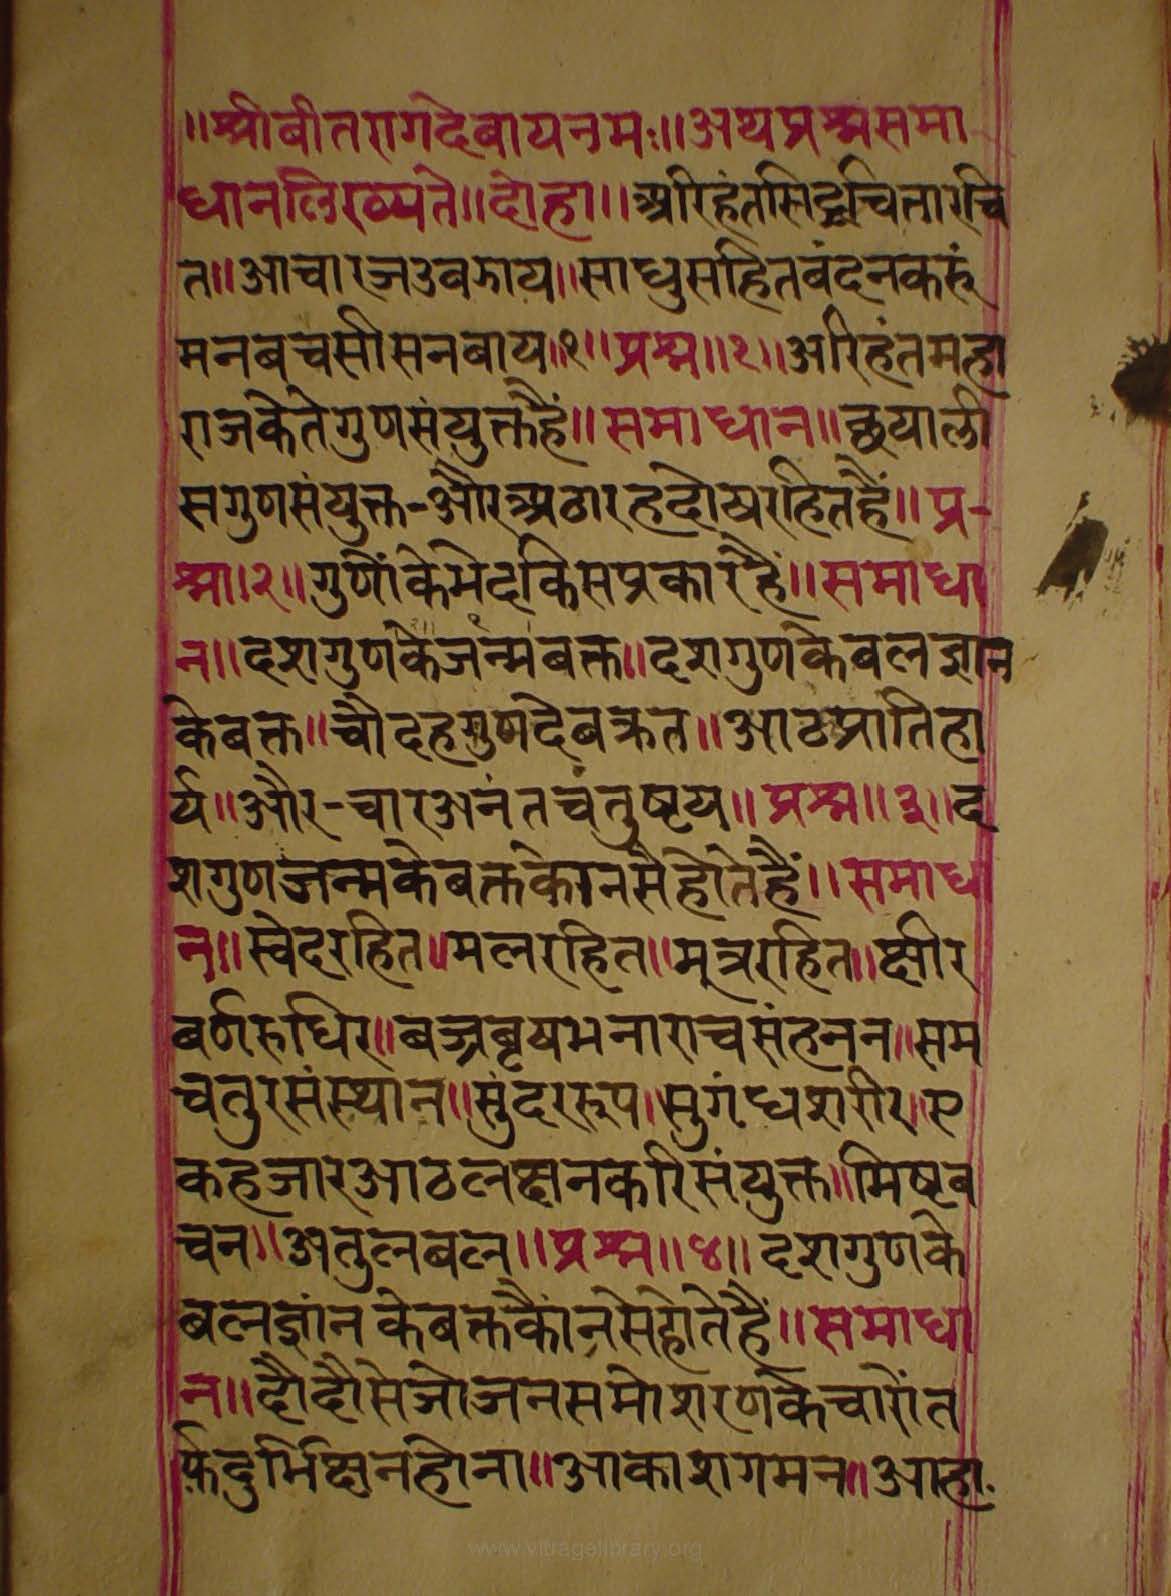 ॥श्रीबीतरागदेबायनमः॥अथप्रश्नसमा
धानलिख्यते॥दोहा॥अरिहंतसिद्धचितारचि
त॥आचारजउवझाय॥साधुसहितवंदनकरूं
मनबचसीसनवाय॥१॥प्रश्न॥१॥अरिहंतमहा
राजकेतेगुणसंयुक्तहैं॥समाधान॥छ्याली
सगुणसंयुक्त-औरअठारहदोषरहितहैं॥प्र-
श्न॥२॥गुणोंकेभेदकिसप्रकारहैं॥समाधा
न॥दशगुणकेजन्मबक्त॥दशगुणकेबलज्ञान
केबक्त॥चौदहगुणदेबक्रत॥आठप्रातिहा
र्य॥और-चारअनंतचंतुष्टय॥प्रश्न॥३॥द
शगुणजन्मकेबक्तकोनसेहोतेहैं॥समाधा
न॥स्वेदरहित॥मलरहित॥मूत्ररहित॥क्षीर
बर्णरुधिर॥बज्रबृषभनाराचसंहनन॥सम
चतुरसंस्थान॥सुंदररूप॥सुगंधशरीर॥ए
कहजारआठलक्षनकरिसंयुक्त॥मिष्टब
चन॥अतुलबल॥प्रश्न॥४॥दशगुणके
बलज्ञांनकेबक्तकौंनसेहोतेहैं॥समाधा
न॥दौदौसेजोजनसमोशरणकेचारोंत
र्फदुर्भिक्षनहोना॥आकाशगमन॥आहा.
www.vitragelibrary.org